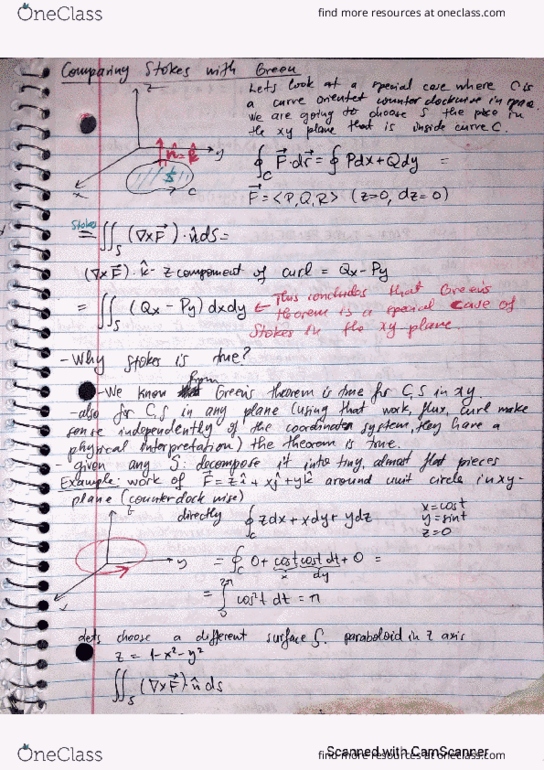 OneClass
find more resources at oneclass.com
Comparing Stokes with Green
Lets look at a special case where C is
a curve orientet counter clockwise in
we are going to choose S the piece in
the xy plane that is inside curve C.
z
n̂=k̂
y
S
x
C
∮_C F⃗·dr⃗ = ∮ Pdx+Qdy =
F⃗=<P,Q,R> (z=0, dz=0)
Stokes
= ∬_S (∇×F⃗)·n̂dS=
(∇×F⃗)·k̂ - z component of curl = Qx-Py
= ∬_S (Qx-Py)dxdy ← This concludes that Green's
theorem is a special case of
Stokes in the xy plane
- Why Stokes is true?
from
-We know Green's theorem is true for C,S in xy
-also for C,S in any plane (using that work, flux, curl make
sense independently of the coordinates system, they have a
physical interpretation) the theorem is true.
- given any S: decompose it into tiny, almost flat pieces
Example: work of F⃗=zî+xĵ+yk̂ around unit circle in xy-
plane (counterclock wise)
z
directly ∮_C zdx+xdy+ydz
x=cost
y=sint
z=0
y
= ∮_C 0+cost cost dt+0 =
x dy
x
= ∫_0^2π cos²t dt = π
lets choose a different surface S. paraboloid in z axis
z = 1-x²-y²
∬_S (∇×F⃗)·n̂ds
OneClass
Scanned with CamScanner
find more resources at oneclass.com